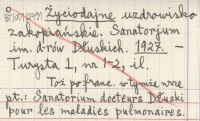 Życiodajne uzdrowisko
zakopiańskie. Sanatorjum
im. d-rów Dłuskich. 1927. -
Turysta 1, na 1-2, il.
Toż po franc. w tymże nrze
pt.: Sanatorium docteurs Dłuski
pour les maladies pulmonaires.